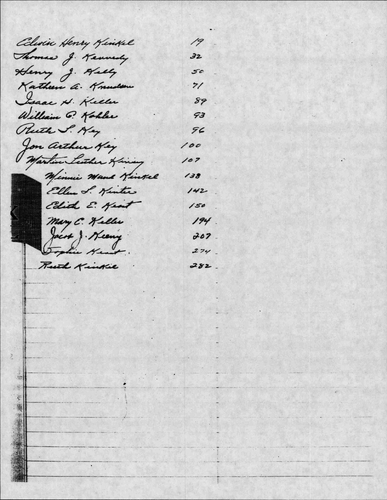 Edwin Henry Kinkel 19
Thomas J. Kennedy 32
Henry J. Kelly 50
Kathern A. Knudson 71
Isaac H. Keller 89
William P. Kohler 93
Ruth L. Key 96
Jon Arthur Key 100
Martin Luther 107
Minnie Maud Kinkel 138
Ellen L. 142
Edith E. 150
Mary C. Keller 194
Jacob J. 207
Sophie 274
Ruth Kinkel 282